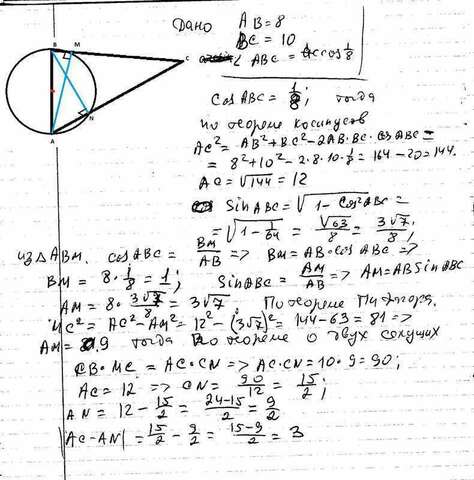 B M C N A
Дано AB = 8
BC = 10
∠ ABC = arccos 1/8
cos ABC = 1/8; тогда
по теореме косинусов
AC² = AB² + BC² - 2AB·BC·cos ABC =
= 8² + 10² - 2·8·10·1/8 = 164 - 20 = 144.
AC = √144 = 12
sin ABC = √1 - cos² ABC =
= √1 - 1/64 = √63/8 = 3√7/8;
из △ ABM. cos ABC = BM/AB => BM = AB·cos ABC =>
BM = 8·1/8 = 1; sin ABC = AM/AB => AM = AB sin ABC
AM = 8·3√7/8 = 3√7 По теореме Пифагора.
MC² = AC² - AM² = 12² - (3√7)² = 144 - 63 = 81 =>
AM = 9 тогда По теореме о двух секущих
CB·MC = AC·CN => AC·CN = 10·9 = 90;
AC = 12 => CN = 90/12 = 15/2;
AN = 12 - 15/2 = 24-15/2 = 9/2
|AC - AN| = 15/2 - 9/2 = 15-9/2 = 3